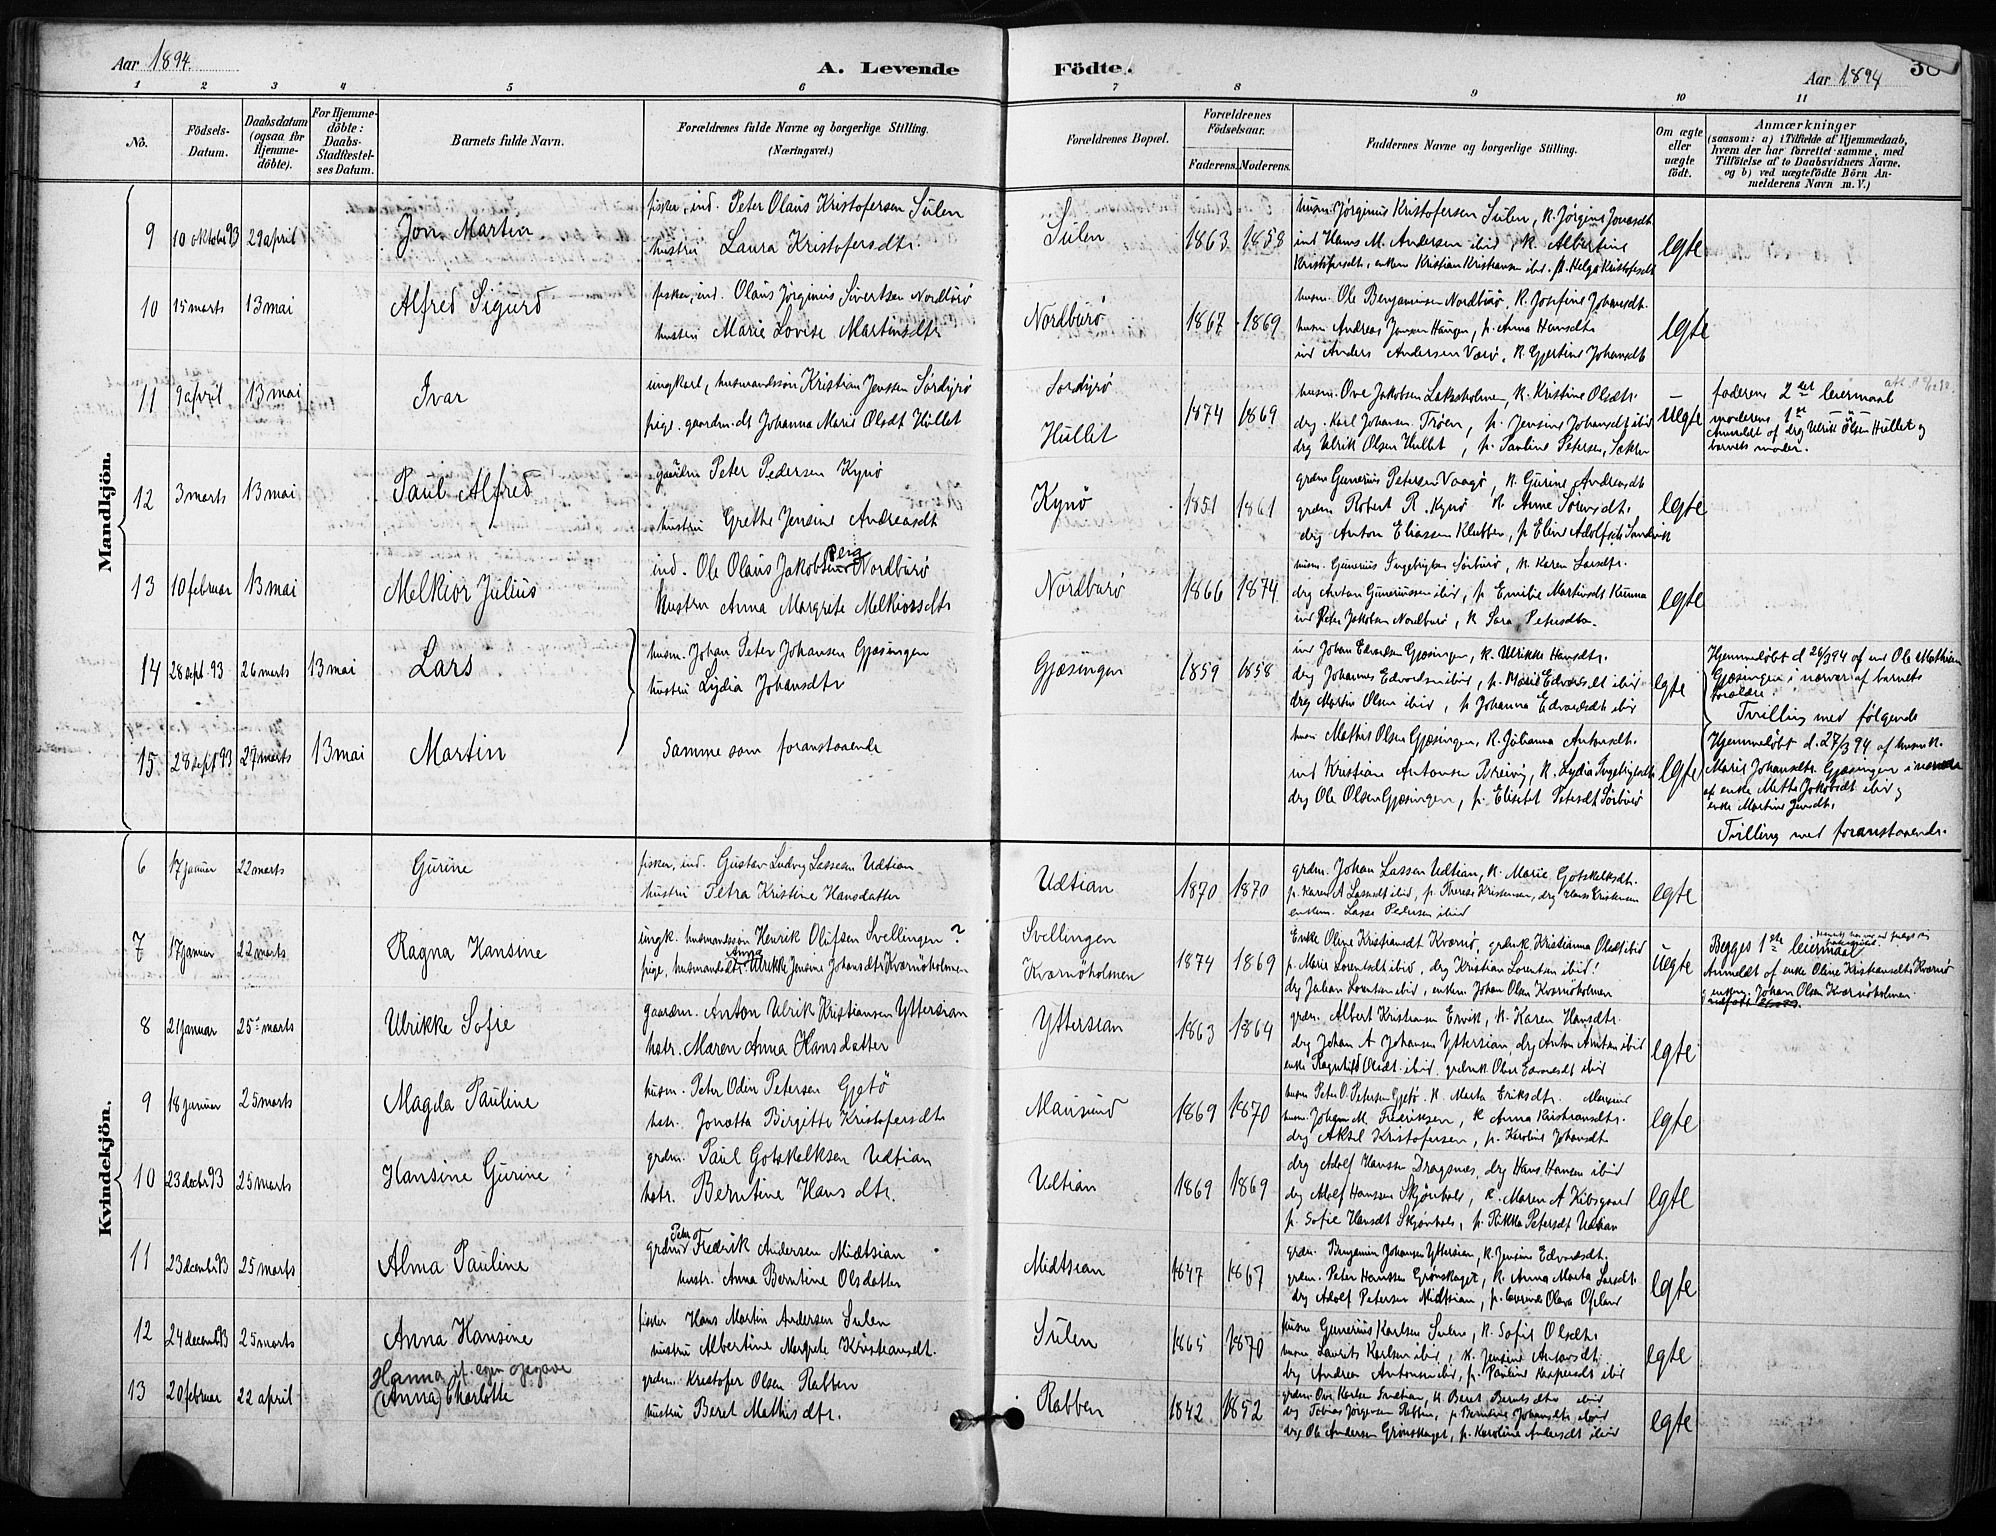 Aar 1894.
A. Levende Födte.
Aar 1894
36
1 2 3 4 5 6 7 8 9 10 11
No.
Födsels-Datum.
Daabsdatum (ogsaa for Hjemme-döbte).
For Hjemme-döbte: Daabs-Stadfæstel-ses Datum.
Barnets fulde Navn.
Forældrenes fulde Navne og borgerlige Stilling. (Næringsvei.)
Forældrenes Bopæl.
Forældrenes Födselsaar.
Faderens. Moderens.
Faddernes Navne og borgerlige Stilling.
Om ægte eller uægte födt.
Anmærkninger
(saasom: a) i Tilfælde af Hjemmedaab, hvem der har forrettet samme, med Tilföielse af to Daabsvidners Navne, og b) ved uægtefödte Börn An-melderens Navn m. V.)
Mandkjön.
9 10 oktober 93 29 april Jon Martin
fisker, ind. Peter Olaus Kristofersen Sulen
hustru Laura Kristofersdtr.
Sulen 1863 1858
husm. Jørginus Kristofersen Sulen, K. Jørgine Jonasdt.
ind Hans M. Andersen ibid, K. Albertine
Kristofersdt, enkem Kristian Kristiansen ibid. p. Helga Kristofersdt
egte
10 15 marts 13 mai Alfred Sigurd
fisker, ind. Olaus Jørginus Sivertsen Nordburø
hustru Marie Lovise Martinsdtr
Nordburø 1867 1869
husm. Ole Benjaminsen Nordburø, K. Josefine Johansdt.
husm Andreas Jensen Haugen, p. Anna Hansdt.
ind Anders Andersen Værø, K. Gjertine Johansdt
egte
11 9 april 13 mai Ivar
ungkarl, husmandssøn Kristian Jenssen Sørdyrø
pige. gaardm.dt Johanna Marie Olsdt Hullet
Sørdyrø
Hullet
1874 1869
husm. Ove Jakobsen Laksholmen, K. Kristine Olsdtr.
drg. Karl Johansen Trøen, p. Jensine Johansdt ibid
drg Ulrik Olsen Hullet, p. Pauline Petersen,
uegte
faderens 2det leiermaal
moderens 1ste
Anmeldt af drg Ulrik Olsen Hullet og
barnets moder.
12 3 marts 13 mai Paul Alfred
gaardm Peter Pedersen Kynø
hustru Grethe Jensine Andreasdt
Kynø 1851 1861
grdm Gunerius Petersen Vaagø, K. Gurine Andreasdt
grdm Robert R. Kynø K. Anne Sørensdt.
drg Anton Eliassen Klubben, p Eline Adolfsdt Sandvik
egte
13 10 februar 13 mai Melkior Julius
ind. Ole Olaus Jakobsen Berg Nordburø
hustru Anna Margrete Melkiorsdtr
Nordburø 1866 1874
husm. Gunerius Ingebrigtsen Sørburø, K. Karen Larsdtr.
drg Anton Guneriussen ibid, p. Emilie Martinsdt Kunna
ind Peter Jakobsen Nordburø, K Sara Petersdtr.
egte
14 28 sept 93 26 marts 13 mai Lars
husm. Johan Peter Johansen Gjæsingen
hustru Lydia Johansdtr
Gjæsingen 1859 1858
ind Johan Edvardsen Gjæsingen, K. Ulrikke Hansdtr.
drg Johannes Edvardsen ibid, p. Marie Edvardsdt ibid
drg Martin Olsen ibid, p Johanna Edvardsdt ibid
egte
Hjemmedøbt d 26/3 94 af ind Ole Mathisen
Gjæsingen i nærvær af barnets
forældre.
Tvilling med følgende
15 28 sept 93 27 marts 13 mai Martin
Samme som foranstaaende
husm Mathis Olsen Gjæsingen, K. Johanna Antonsdt.
ind Kristian Antonsen Breivig, K. Lydia Ingebrigtsdt
drg Ole Olsen Gjæsingen, p. Elisebet Petersdt Sørburø
egte
Hjemmedøbt d. 27/3 94 af husm K.
Marie Johansdtr Gjæsingen i nærvær
af enke Mette Jakobsdt ibid og
enke Martine Jensdtr.
Tvilling med foranstaaende.
Kvindekjön.
6 17 januar 22 marts Gurine
fisker, ind. Gustav Ludvig Lassesen Udtian
hustru Petra Kristine Hansdatter
Udtian 1870 1870
grdm. Johan Lassen Udtian, K. Marie Gotskalksdt.
p. Karen A Lassedt ibid, p. Therese Kristensen, drg Hans Kristensen
enkem. Lasse Pedersen ibid
egte
7 17 januar 22 marts Ragna Hansine
ungk. husmandssøn Henrik Olufsen Svellingen ?
pige, husmandsdt. Anna Ulrikke Jensine Johansdtr Kvernøholmen
Svellingen
Kvernøholmen
1874 1869
Enke Oline Kristiansdt Kvernø, grdmk Kristianna Olsdt ibid
p. Marie Lorentsdt ibid, drg Kristian Lorentsen ibid
drg Julian Lorentsen ibid, enkem Johan Olsen Kvernøholmen
uegte
Begges 1ste leiermaal
Anmeldt af enke Oline Kristiansdtr Kvernø
og enkem. Johan Olsen Kvernøholmen
8 21 januar 25 marts Ulrikke Sofie
gaardm. Anton Ulrik Kristiansen Yttersian
hstr. Maren Anna Hansdatter
Yttersian 1863 1864
grdm. Albert Kristiansen Ervik, K. Karen Hansdtr.
drg Johan A Johansen Yttersian, drg Anton Antsen ibid
enke Ragnhild Olsdt ibid, grdmk Oline Edvardsdt ibid
egte
9 18 januar 25 marts Magda Pauline
husm. Peter Odin Petersen Gjetø
hstr. Jonetta Birgitte Kristofersdt
Mausund 1869 1870
husm Peter O. Petersen Gjetø. K. Marta Eriksdt. Mausund
husm. Johan M. Fredriksen, K Anna Kristiansdt.
drg Aksel Kristofersen, p. Karoline Johansdt.
egte
10 23 decbr 93 25 marts Hansine Gurine
grdm. Paul Gotskalksen Udtian
hstr. Berntine Hansdtr.
Udtian 1869 1869
drg Adolf Hanssen Dragsnes, drg Hans Hansen ibid
drg Adolf Hanssen Skjønhals, K. Maren A Kibsgaard
p. Sofie Hansdt Skjønhals, p. Rikka Petersdt Udtian
egte
11 23 decembr 93 25 marts Alma Pauline
grdm Peter Fredrik Andersen Midtsian
hustr. Anna Berntine Olsdatter
Midtsian 1847 1867
grdm. Benjamin Johansen Yttersian, K. Jensine Edvardsdt.
grdm. Peter Hanssen Grønskaget, K. Anna Marta Larsdt.
drg Adolf Petersen Midtsian, p. lærerinde Olava Opland
egte
12 24 decembr 93 25 marts Anna Hansine
fisker Hans Martin Andersen Sulen
hustru Albertine Margrete Kristiansdt.
Sulen 1865 1870
husm Gunerius Karlsen Sulen, K. Sofie Olsdtr.
husm Laurits Karlsen ibid, K. Jensine Antonsdt.
drg Andreas Antonsen ibid, p. Pauline Kaspersdt ibid
egte
13 20 februar 22 april
Hanna if. egen opgave
(Anna) Charlotte
grdm. Kristofer Olsen Rabben
hustru Beret Mathisdtr.
Rabben 1842 1852
grdm. Ove Karlsen Inntian, K Beret Berntsdtr ibid
drg Tobias Jørgensen Rabben, p Berntine Johansdt ibid
drg Ole Andersen Grønskaget, p. Karoline Andersdt ibid
egte